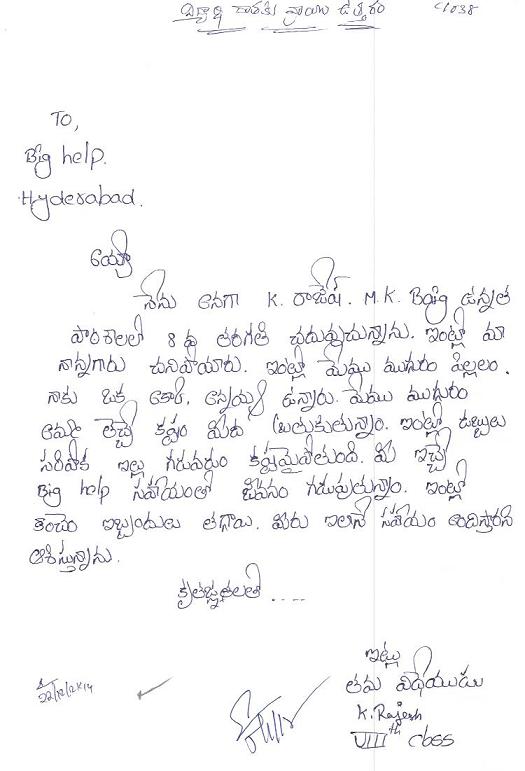 విద్యార్థి రాతకు వ్రాయు ఉత్తరం C1038
To,
Big help.
Hyderabad.
అయ్యా
నేను అనగా K. రాజేష్. M.K. Baig ఉన్నత
పాఠశాలలో 8 వ తరగతి చదువుచున్నాను. ఇంట్లో మా
నాన్నగారు చనిపోయారు. ఇంట్లో మేము ముగురం పిల్లలం.
నాకు ఒక అక్క, అన్నయ్య ఉన్నారు. మేము ముగ్గురం
అమ్మ తెచ్చే కష్టం మీద బ్రతుకుతున్నాం. ఇంట్లో డబ్బులు
సరిపోక ఇల్లు గడువడం కష్టమైపోతుంది. మీ ఇచ్చే
Big help సహాయంతో జీవనం గడుపుతున్నాం. ఇంట్లో
కొంచెం ఇబ్బందులు తగ్గాయి. మీరు ఇలానే సహాయం అందిస్తారని
ఆశిస్తున్నాను.
కృతజ్ఞతలతో ....
ఇట్లు
తమ విధేయుడు
K. Rajesh
VIII th class
22/12/2k14